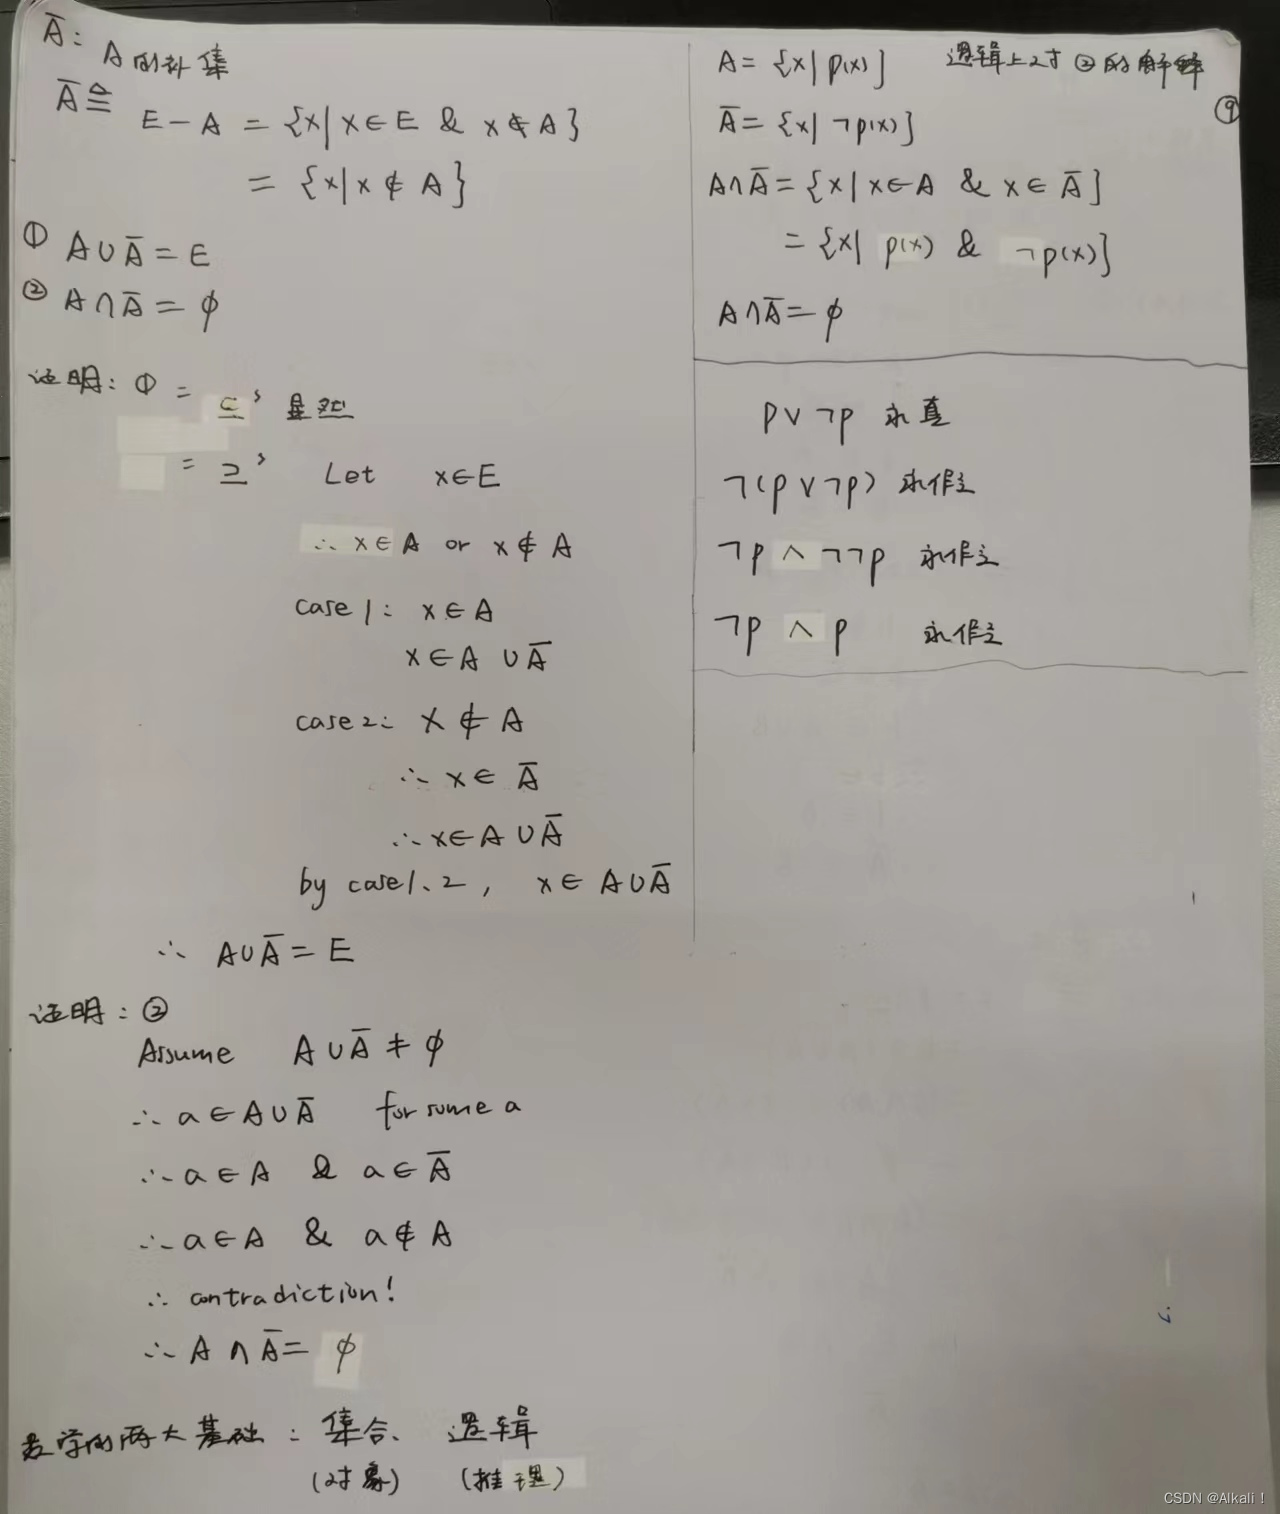 Ā: A的补集
Ā ≙ E − A = {x| x∈E & x∉A}
= {x|x∉A}
① A∪Ā = E
② A∩Ā = ϕ
证明: ① = ⊆' 显然
= ⊇' Let x∈E
∴ x∈A or x∉A
case 1: x∈A
x∈A ∪Ā
case 2: x∉A
∴ x∈Ā
∴ x∈A∪Ā
by case 1、2, x∈A∪Ā
∴ A∪Ā = E
证明: ②
Assume A∪Ā ≠ ϕ
∴ a∈A∪Ā for some a
∴ a∈A & a∈Ā
∴ a∈A & a∉A
∴ contradiction!
∴ A∩Ā = ϕ
数学的两大基础: 集合、逻辑
(对象) (推理)
A = {x| p(x)} 逻辑上对②的解释
⑨
Ā = {x| ¬p(x)}
A∩Ā = {x| x∈A & x∈Ā}
= {x| p(x) & ¬p(x)}
A∩Ā = ϕ
p∨¬p 永真
¬(p∨¬p) 永假
¬p ∧ ¬¬p 永假
¬p ∧ p 永假
CSDN @Alkali！